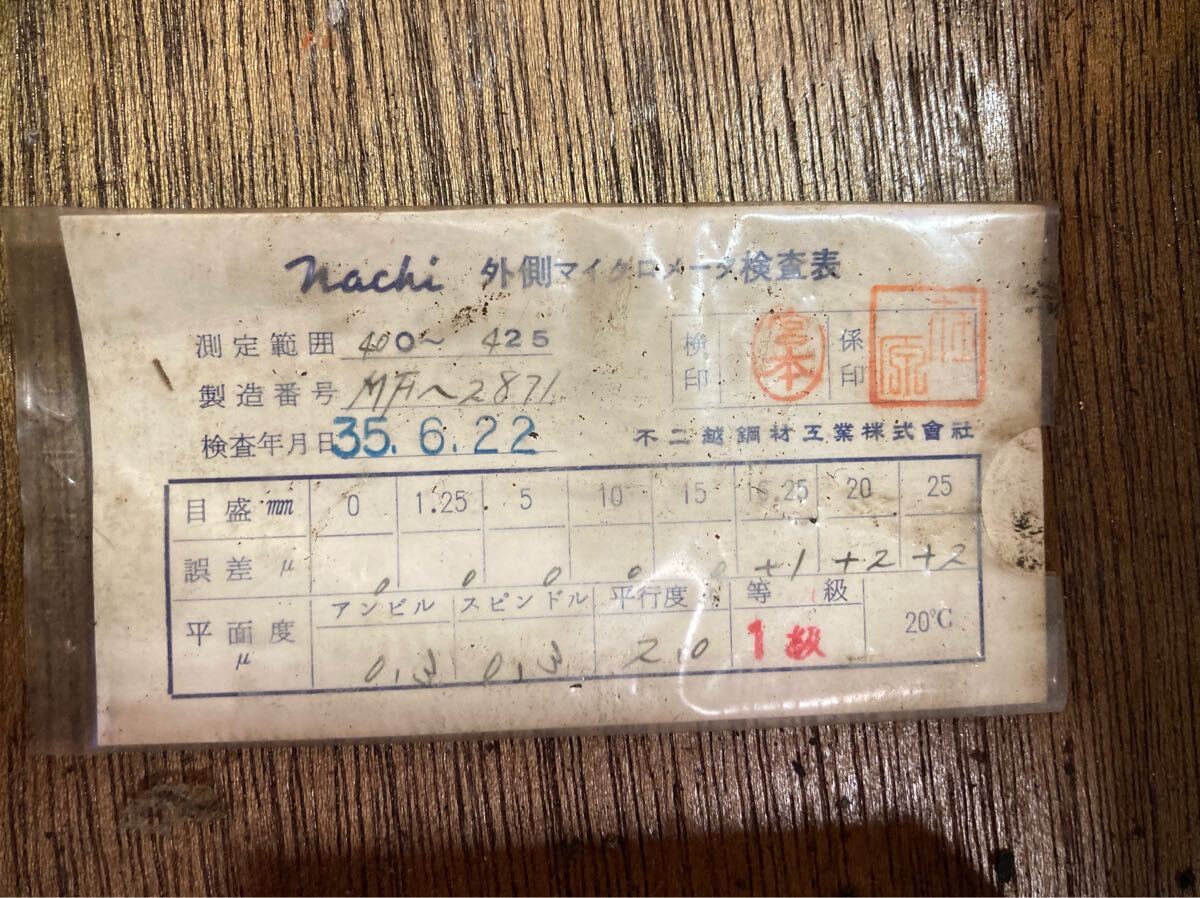 nachi 外側マイクロメータ検査表
測定範囲 400～ 425
検印 宮本 係印
製造番号 MF～2871
検査年月日 35. 6. 22
不二越鋼材工業株式會社
目盛 mm 0 1.25 5 10 15 16.25 20 25
誤差 μ 0 0 0 0 0 +1 +2 +2
平面度 μ アンビル スピンドル 平行度 等 級 20℃
0.3 0.3 2.0 1級